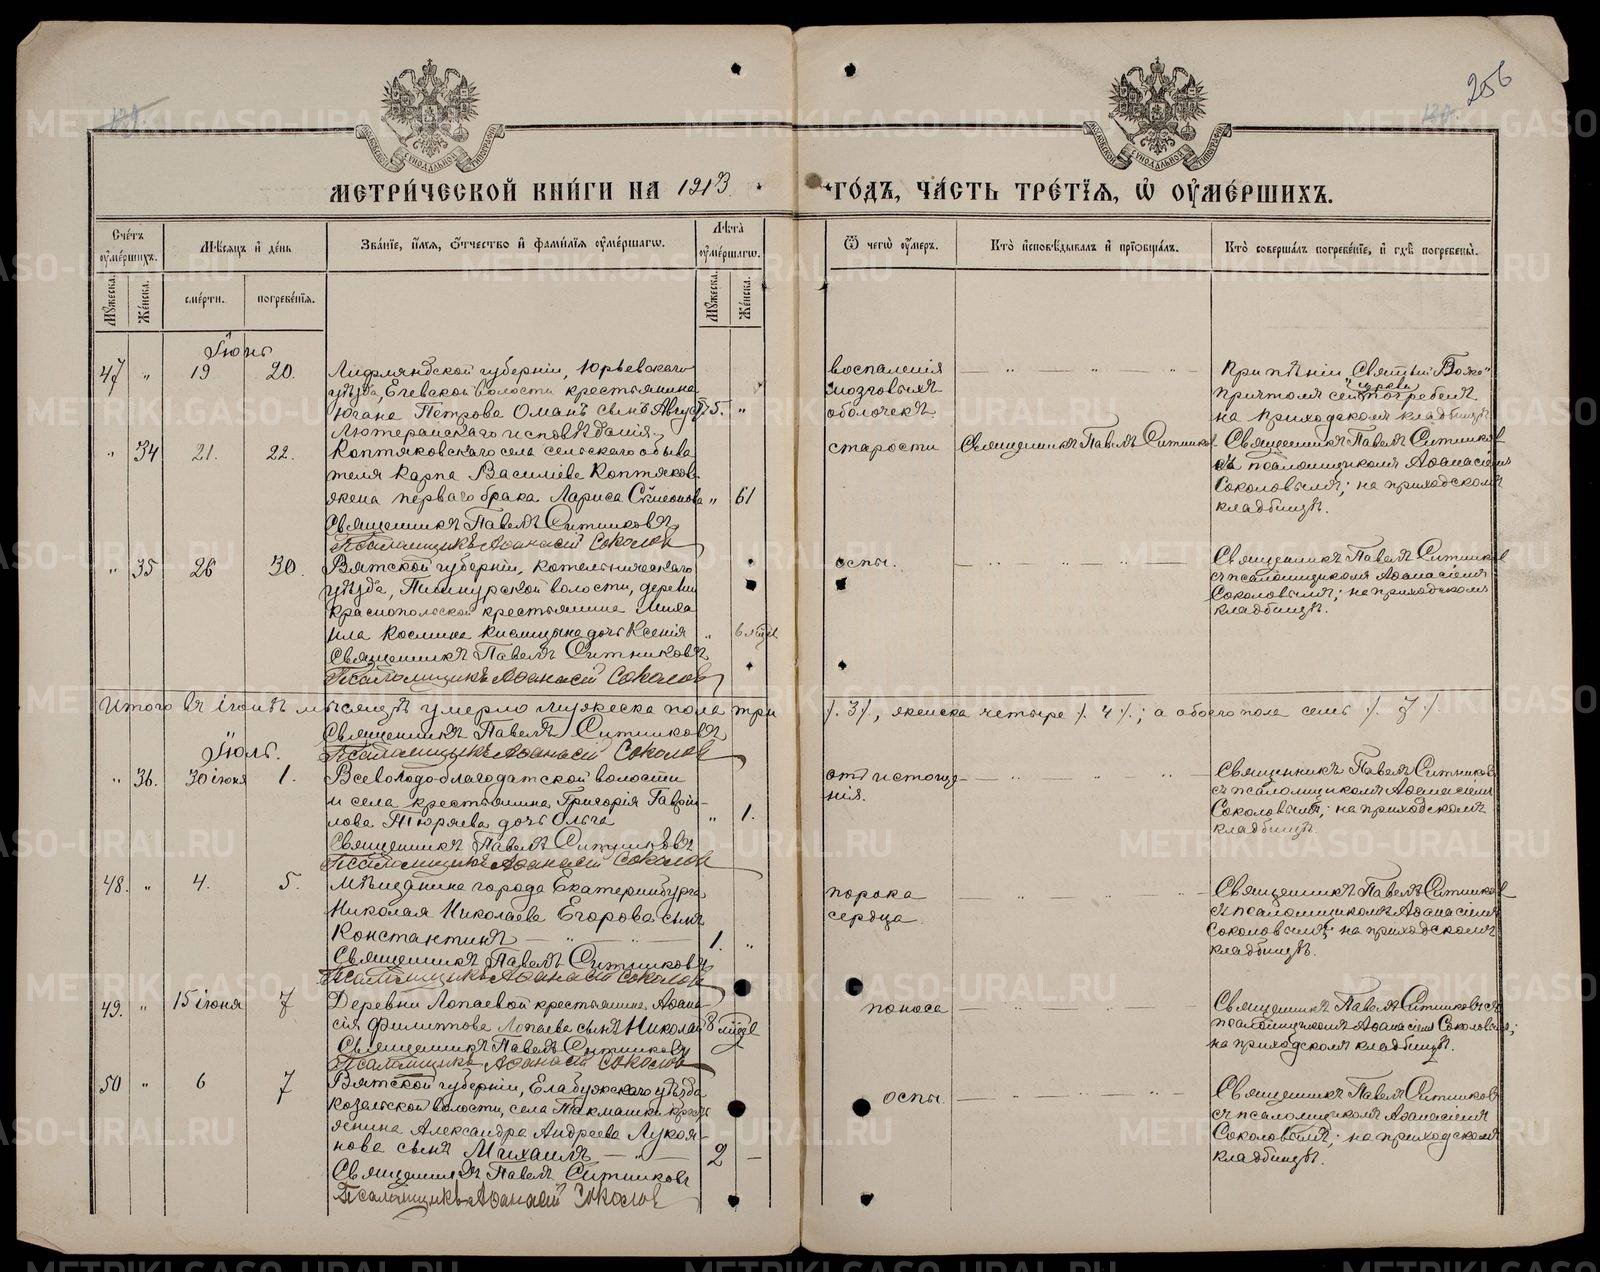 256
МОСКОВСКОЙ СѴНОДАЛЬНОЙ ТИПОГРАФІИ
МОСКОВСКОЙ СѴНОДАЛЬНОЙ ТИПОГРАФІИ
МЕТРИ́ЧЕСКОЙ КНИ́ГИ НА 1913
ГО́ДЪ, ЧА́СТЬ ТРЕ́ТЇѦ, Ѡ҆ ОУ҆МЕ́РШИХЪ.
Счётъ оумершихъ.
Мѣсяцъ и день
Званіе, имя, отчество и фамилія оумершагѡ.
Лѣта оумершагѡ.
Ѿ чегѡ оумеръ.
Кто исповѣдывалъ и пріобщалъ.
Кто совершалъ погребеніе, и гдѣ погребены.
Мужеска.
Женска.
смерти.
погребенія.
Мужеска.
Женска.
Іюнь
47 " 19 20. Лифляндской губерніи, Юрьевскаго
уѣзда, волости крестьянина
Югана Петрова Оманъ сынъ Августъ 5. "
Лютеранскаго исповѣданія
воспаленія
мозговыхъ
оболочекъ
При пѣніи Святый Боже"
причтомъ сей церкви погребенъ
на приходскомъ кладбищѣ
" 34 21. 22. Коптяковскаго села сельскаго обыва
теля Карпа Василіева Коптякова
жена перваго брака Лариса Симеонова " 61
Священникъ Павелъ Ситниковъ
Псаломщикъ Аѳанасій Соколов
старости
Священникъ Павелъ Ситников
Священникъ Павелъ Ситников
съ псаломщикомъ Аѳанасіемъ
Соколовымъ; на приходскомъ
кладбищѣ.
" 35 26 30. Вятской губерніи, Котельническаго
уѣзда, волости, деревни
Краснопольской крестьянина Миха
ила Космина дочь Ксенія " 6 мѣс
Священникъ Павелъ Ситниковъ
Псаломщикъ Аѳанасій Соколов
оспы.
Священникъ Павелъ Ситников
съ псаломщикомъ Аѳанасіемъ
Соколовымъ; на приходскомъ
кладбищѣ.
Итого въ іюнѣ мѣсяцѣ умерло мужеска пола три
/. 3 /., женска четыре /. 4 /.; а обоего пола семь /. 7 /.
Священникъ Павелъ Ситниковъ
Псаломщикъ Аѳанасій Соколов
Іюль.
" 36. 30 іюня 1. Всеволодо-благодатской волости
и села крестьянина Григорія Гаврі-
лова Тюряева дочь Ольга " 1.
Священникъ Павелъ Ситниковъ
Псаломщикъ Аѳанасій Соколов
отъ истоще-
нія.
Священникъ Павелъ Ситников
съ псаломщикомъ Аѳанасіемъ
Соколовымъ; на приходскомъ
кладбищѣ.
48. " 4. 5. Мѣщанина города Екатеринбурга
Николая Николаева Егорова сынъ
Константинъ 1. "
Священникъ Павелъ Ситниковъ
Псаломщикъ Аѳанасій Соколов
порока
сердца
Священникъ Павелъ Ситников
съ псаломщикомъ Аѳанасіемъ
Соколовымъ; на приходскомъ
кладбищѣ.
49. " 15 іюня 7 Деревни Лопаевой крестьянина Аѳана-
сія Филиппова Лопаева сынъ Николай 8 мѣс
Священникъ Павелъ Ситниковъ
Псаломщикъ Аѳанасій Соколов
поноса
Священникъ Павелъ Ситниковъ съ
псаломщикомъ Аѳанасіемъ Соколовымъ;
на приходскомъ кладбищѣ.
50 " 6 7 Вятской губерніи, Елабужскаго уѣзда
Козельской волости, села Такмашки кресть-
янина Александра Андреева Лукоя-
нова сынъ Михаилъ 2 —
Священникъ Павелъ Ситниковъ
Псаломщикъ Аѳанасій Соколов
оспы.
Священникъ Павелъ Ситников
съ псаломщикомъ Аѳанасіемъ
Соколовымъ; на приходскомъ
кладбищѣ.
METRIKI.GASO-URAL.RU